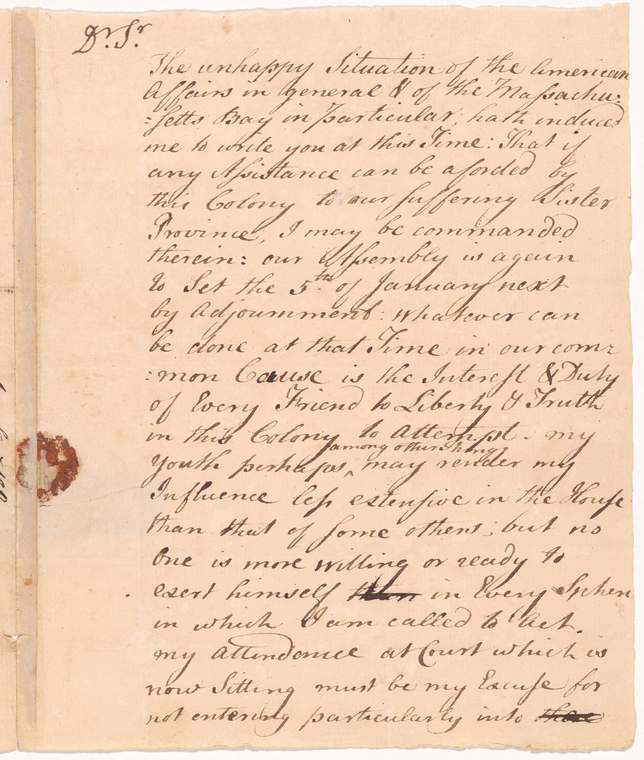 Dr. Sr.
The unhappy Situation of the American
Affairs in general & of the Massachu:
:setts Bay in particular, hath induced
me to write you at this Time: That if
any Assistance can be aforded by
this Colony to our suffering Sister
Province, I may be commanded
therein: our Assembly is again
to Set the 5th. of January next
by Adjournment: whatever can
be done at that Time in our com:
:mon Cause is the Interest & Duty
of Every Friend to Liberty & Truth
in this Colony to Attempt - my
among other things
youth perhaps ^ may render my
Influence less extensive in the House
than that of some others; but no
one is more willing or ready to
exert himself than in Every Sphere
in which I am called to Act.
my Attendance at Court which is
now Sitting must be my Excuse for
not entering particularly into